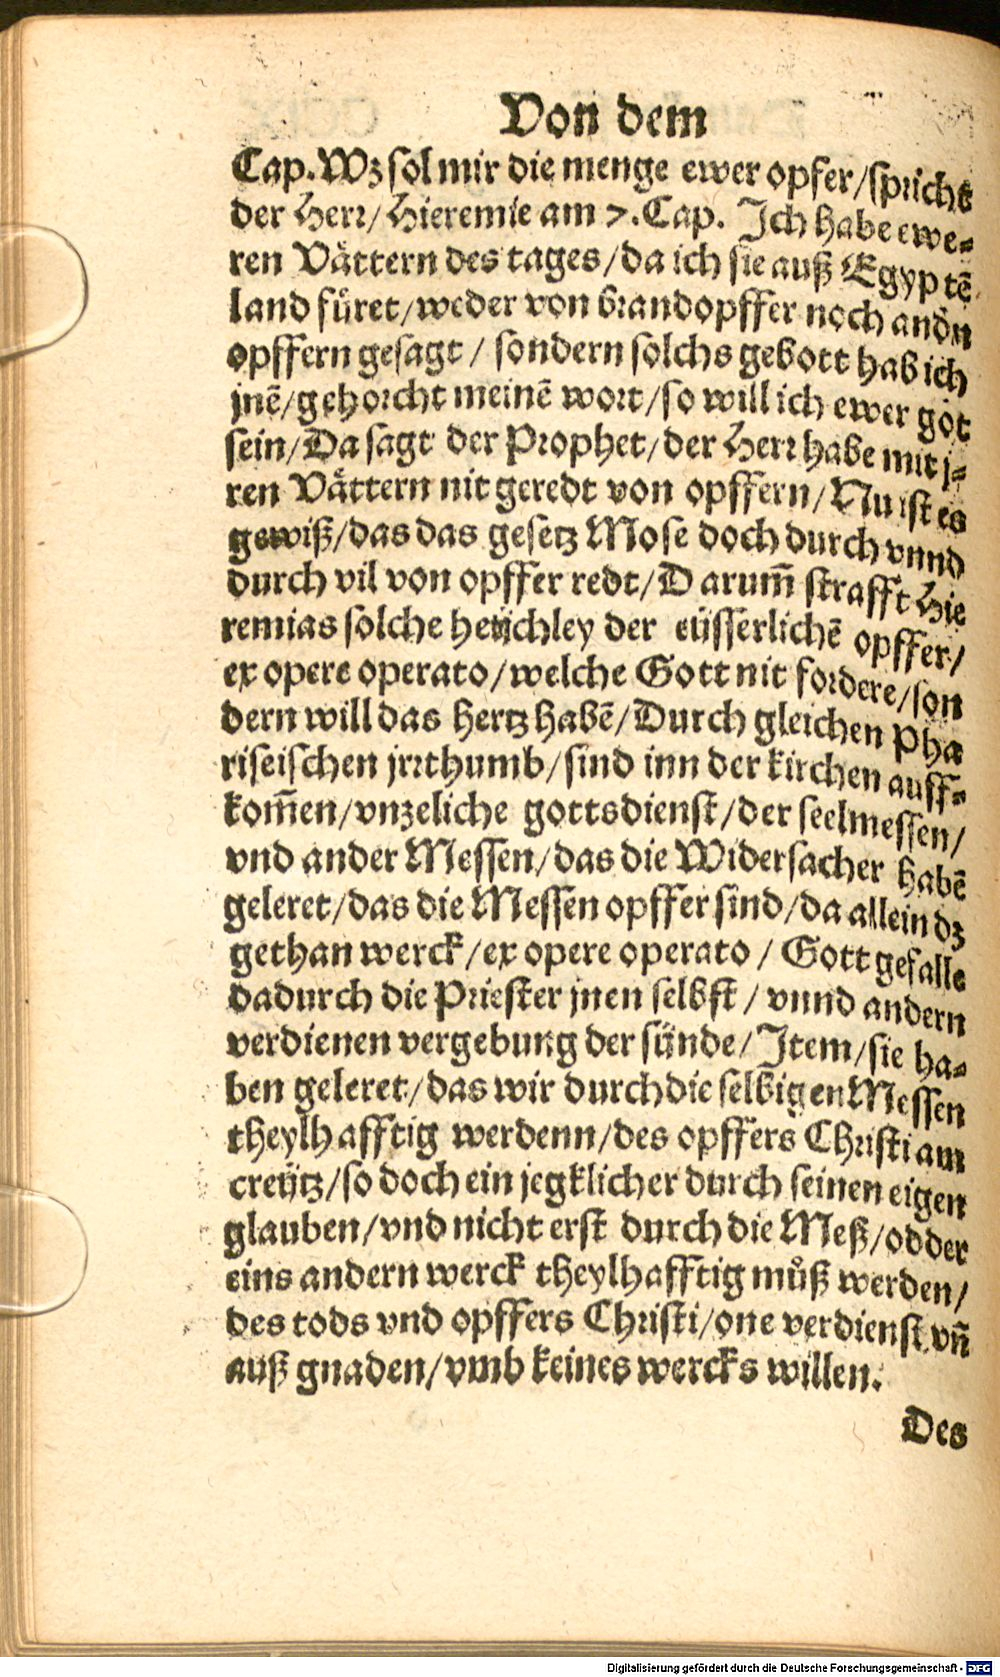 Von dem
Cap. Wz sol mir die menge ewer opfer/spricht
der Herr/Hieremie am 7. Cap. Ich habe ewe-
ren Vättern des tages/da ich sie auß Egyptē
land füret/weder von brandopffer noch andn
opffern gesagt/sondern solchs gebott hab ich
jnē/gehorcht meinē wort/so will ich ewer got
sein/Da sagt der Prophet/der Herr habe mit j-
ren Vättern nit geredt von opffern/Nu ist es
gewiß/das das gesetz Mose doch durch vnnd
durch vil von opffer redt/Darum̄ strafft Hie
remias solche heüchley der eüsserlichē opffer/
ex opere operato/welche Gott nit fordere/son
dern will das hertz habē/Durch gleichen Pha
riseischen jrrthumb/sind inn der kirchen auff-
kom̄en/vnzeliche gottsdienst/der seelmessen/
vnd ander Messen/das die Widersacher habē
geleret/das die Messen opffer sind/da allein dz
gethan werck/ex opere operato/Gott gefalle
dadurch die Priester jnen selbst/vnnd andern
verdienen vergebung der sünde/Item/sie ha-
ben geleret/das wir durch die selbigen Messen
theylhafftig werdenn/des opffers Christi am
creütz/so doch ein jegklicher durch seinen eigen
glauben/vnd nicht erst durch die Meß/odder
eins andern werck theylhafftig můß werden/
des tods vnd opffers Christi/one verdienst vn̄
auß gnaden/vmb keines wercks willen.
Des
Digitalisierung gefördert durch die Deutsche Forschungsgemeinschaft - DFG